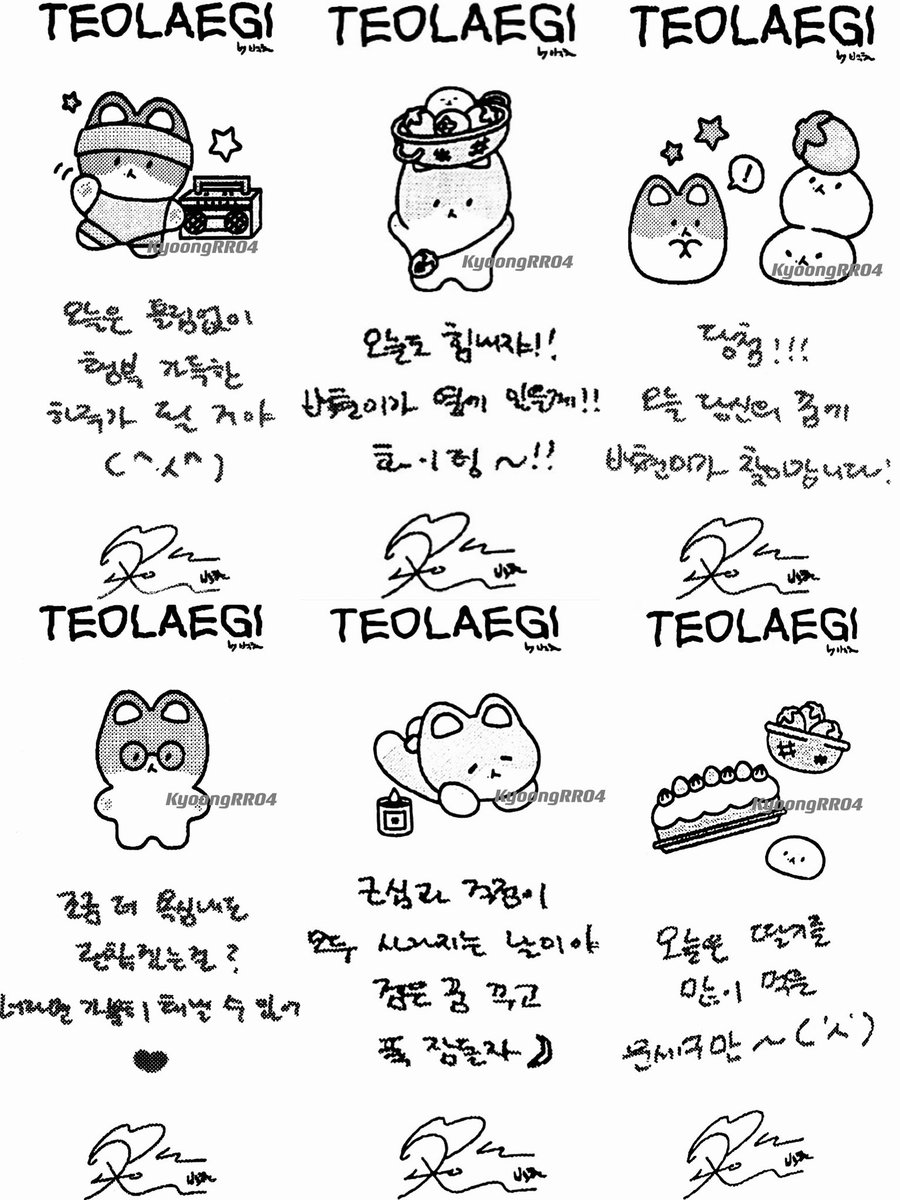 TEOLAEGI
by 백현
KyoongRR04
오늘은 틀림없이
행복 가득한
하루가 될 거야
( ^ㅅ^ )
백현
TEOLAEGI
by 백현
KyoongRR04
오늘도 힘내자!!
백현이가 옆에 있을게!!
화이팅 ~!!
백현
TEOLAEGI
by 백현
!
KyoongRR04
당첨!!!
오늘 당신의 꿈에
백현이가 찾아갑니다!
백현
TEOLAEGI
by 백현
KyoongRR04
조금 더 욕심내도
괜찮겠는걸?
너라면 가뿐히 해낼 수 있어
백현
TEOLAEGI
by 백현
KyoongRR04
근심과 걱정이
모두 사라지는 날이야
좋은 꿈 꾸고
푹 잠들자
백현
TEOLAEGI
by 백현
KyoongRR04
오늘은 딸기를
많이 먹을
운세구만 ~ ( 'ㅅ' )
백현